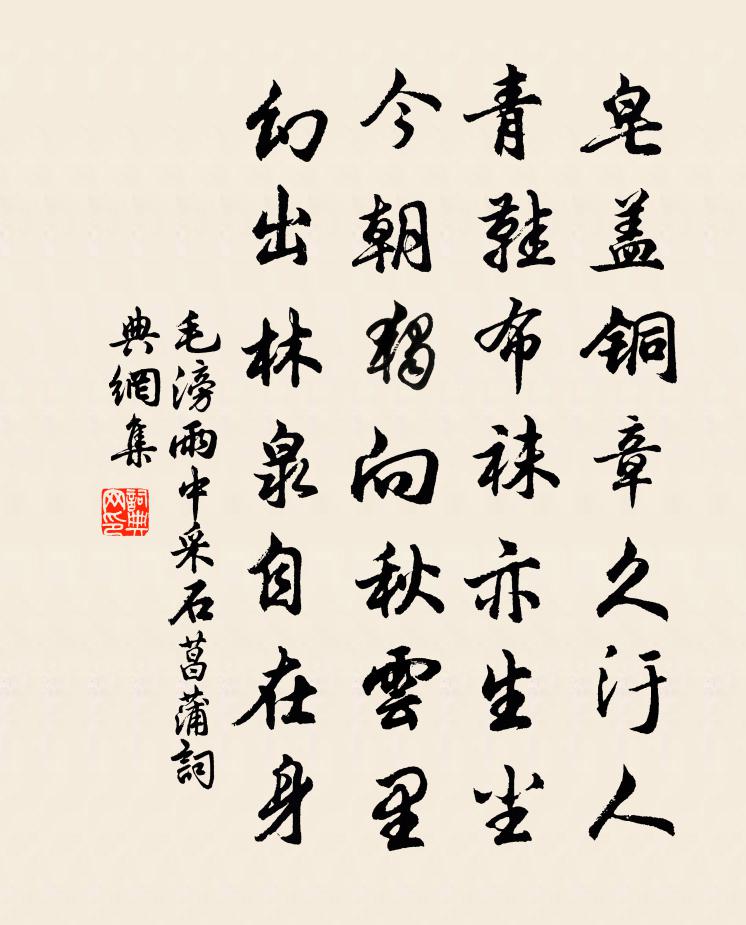 皂盖铜章久汙人
青鞋布袜亦生尘
今朝独向秋雲里
幻出林泉自在身
毛滂雨中采石菖蒲詞
典網集
詞典网印